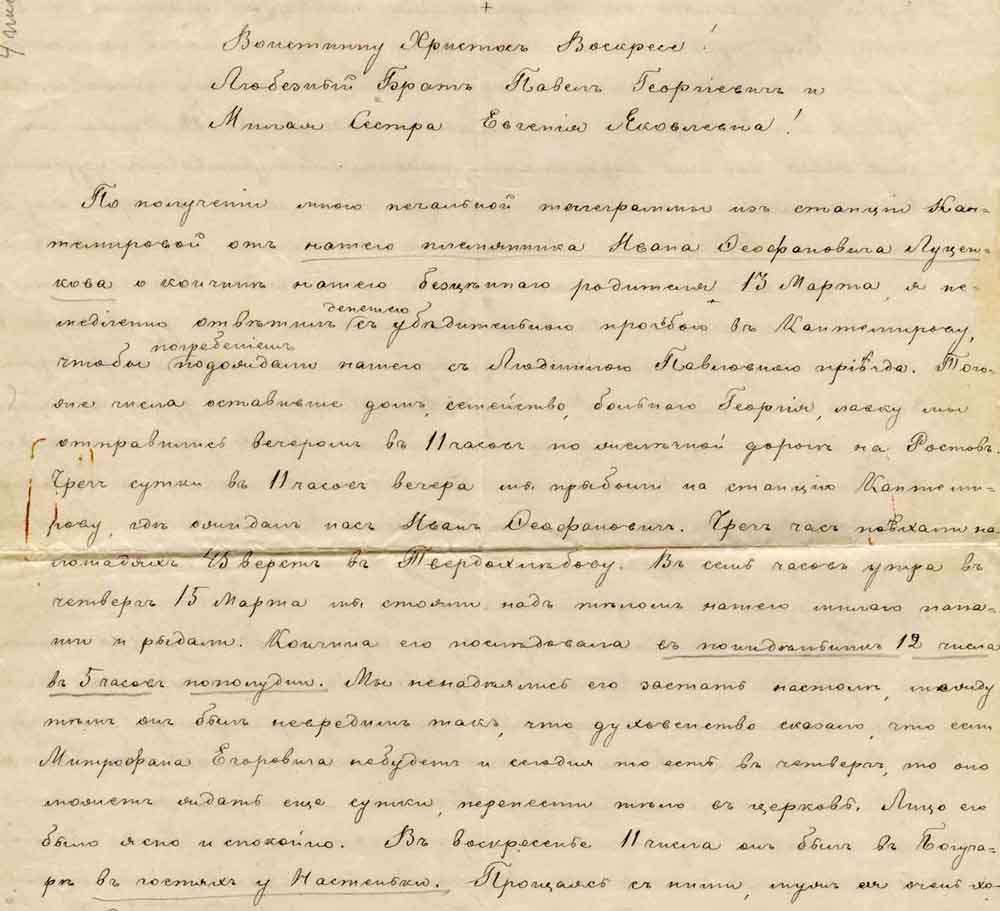 +
Воистинну Христосъ Воскресе!
Любезный Братъ Павелъ Георгіевичъ и
Милая Сестра Евгенія Яковлевна!
По полученіи мною печальной телеграммы изъ станціи Кан-
темировой отъ нашего племянника Ивана Ѳеофановича Луцен-
кова о кончинѣ нашего безцѣннаго родителя 13 Марта, я не-
медленно отвѣтилъ депешею съ убѣдительною просьбою въ Кантемирову,
чтобы погребеніемъ подождали нашего съ Людмилою Павловною пріѣзда. Того-
же числа оставивше домъ, семейство, больного Георгія, лавку мы
отправились вечеромъ въ 11 часовъ по желѣзной дорогѣ на Ростовъ.
Чрезъ сутки въ 11 часовъ вечера мы прибыли на станцію Кантеми-
рову, гдѣ ожидалъ насъ Иванъ Ѳеофановичъ. Чрезъ часъ поѣхали на
лошадяхъ 45 верстъ въ Твердохлѣбову. Въ семь часовъ утра въ
четвергъ 15 Марта мы стояли надъ тѣломъ нашего милаго папа-
ши и рыдали. Кончина его послѣдовала въ понидѣльникъ 12 числа
въ 5 часовъ пополудни. Мы ненадѣялись его застать настолѣ, между
тѣмъ онъ былъ невредимъ такъ, что духовенство сказало, что если
Митрофана Егоровича небудетъ и сегодня то есть въ четвергъ, то оно
можетъ ждать еще сутки, перенести тѣло въ церковь. Лицо его
было ясно и спокойно. Въ воскресенье 11 числа онъ былъ въ Богуча-
рѣ въ гостяхъ у Настеньки. Прощаясь съ ними, мужъ ея очень хо-